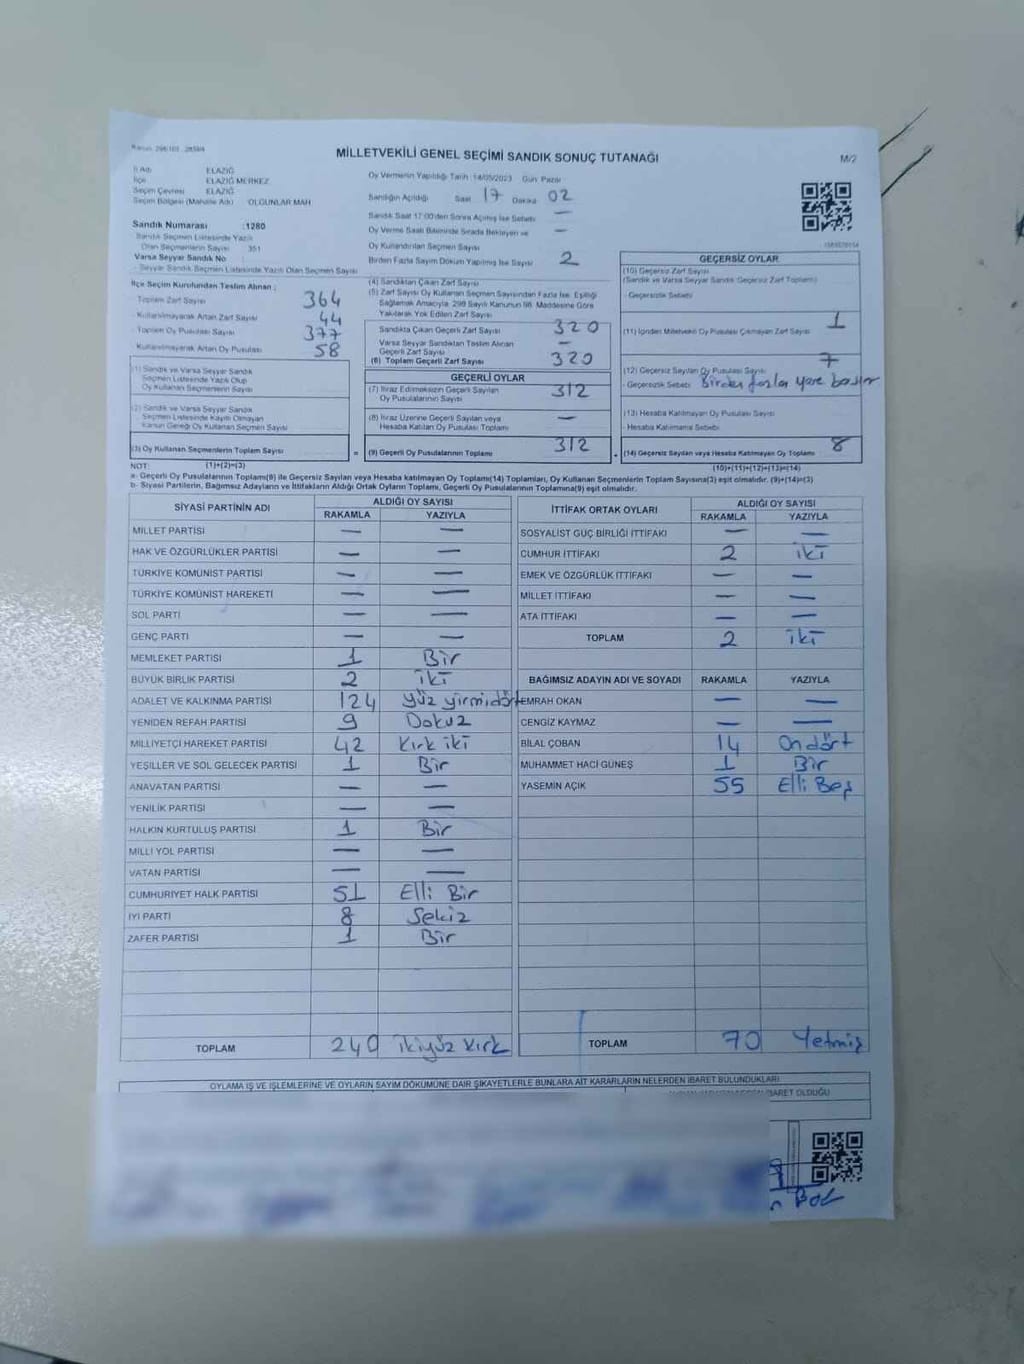 MİLLETVEKİLİ GENEL SEÇİMİ SANDIK SONUÇ TUTANAĞI
M/2
İl Adı ELAZIĞ
İlçe ELAZIĞ MERKEZ
Seçim Çevresi ELAZIĞ
Seçim Bölgesi (Mahalle Adı) OLGUNLAR MAH
Sandık Numarası :1280
Sandık Seçmen Listesinde Yazılı
Olan Seçmenlerin Sayısı 351
Varsa Seyyar Sandık No
Seyyar Sandık Seçmen Listesinde Yazılı Olan Seçmen Sayısı
İlçe Seçim Kurulundan Teslim Alınan ;
Toplam Zarf Sayısı 364
Kullanılmayarak Artan Zarf Sayısı 44
Toplam Oy Pusulası Sayısı 377
Kullanılmayarak Artan Oy Pusulası 58
(1) Sandık ve Varsa Seyyar Sandık
Seçmen Listesinde Yazılı Olup
Oy Kullanan Seçmenlerin Sayısı
(2) Sandık ve Varsa Seyyar Sandık
Seçmen Listesinde Kayıtlı Olmayan
Kanun Gereği Oy Kullanan Seçmen Sayısı
(3) Oy Kullanan Seçmenlerin Toplam Sayısı =
(1)+(2)=(3)
Oy Vermenin Yapıldığı Tarih : 14/05/2023 Gün Pazar
Sandığın Açıldığı Saat 17 Dakika 02
Sandık Saat 17.00'den Sonra Açılmış İse Sebebi —
Oy Verme Saati Bitiminde Sırada Bekleyen ve —
Oy Kullandırılan Seçmen Sayısı
Birden Fazla Sayım Döküm Yapılmış İse Sayısı 2
(4) Sandıktan Çıkan Zarf Sayısı
(5) Zarf Sayısı Oy Kullanan Seçmen Sayısından Fazla İse, Eşitliği
Sağlamak Amacıyla, 298 Sayılı Kanunun 98. Maddesine Göre
Yakılarak Yok Edilen Zarf Sayısı
Sandıkta Çıkan Geçerli Zarf Sayısı 320
Varsa Seyyar Sandıktan Teslim Alınan —
Geçerli Zarf Sayısı
(6) Toplam Geçerli Zarf Sayısı 320
GEÇERLİ OYLAR
(7) İtiraz Edilmeksizin Geçerli Sayılan 312
Oy Pusulalarının Sayısı
(8) İtiraz Üzerine Geçerli Sayılan veya —
Hesaba Katılan Oy Pusulası Toplamı
(9) Geçerli Oy Pusulalarının Toplamı 312
GEÇERSİZ OYLAR
(10) Geçersiz Zarf Sayısı
(Sandık ve Varsa Seyyar Sandık Geçersiz Zarf Toplamı)
- Geçersizlik Sebebi
(11) İçinden Milletvekili Oy Pusulası Çıkmayan Zarf Sayısı 1
(12) Geçersiz Sayılan Oy Pusulası Sayısı 7
- Geçersizlik Sebebi Birden fazla yere
(13) Hesaba Katılmayan Oy Pusulası Sayısı
- Hesaba Katılmama Sebebi
(14) Geçersiz Sayılan veya Hesaba Katılmayan Oy Toplamı 8
(10)+(11)+(12)+(13)=(14)
NOT:
a- Geçerli Oy Pusulalarının Toplamı(9) ile Geçersiz Sayılan veya Hesaba katılmayan Oy Toplamı(14) Toplamları, Oy Kullanan Seçmenlerin Toplam Sayısına(3) eşit olmalıdır. (9)+(14)=(3)
b- Siyasi Partilerin, Bağımsız Adayların ve İttifakların Aldığı Ortak Oyların Toplamı, Geçerli Oy Pusulalarının Toplamına(9) eşit olmalıdır.
SİYASİ PARTİNİN ADI ALDIĞI OY SAYISI
RAKAMLA YAZIYLA
MİLLET PARTİSİ — —
HAK VE ÖZGÜRLÜKLER PARTİSİ — —
TÜRKİYE KOMÜNİST PARTİSİ — —
TÜRKİYE KOMÜNİST HAREKETİ — —
SOL PARTİ — —
GENÇ PARTİ — —
MEMLEKET PARTİSİ 1 Bir
BÜYÜK BİRLİK PARTİSİ 2 iki
ADALET VE KALKINMA PARTİSİ 124 yüz yirmidört
YENİDEN REFAH PARTİSİ 9 Dokuz
MİLLİYETÇİ HAREKET PARTİSİ 42 Kırk iki
YEŞİLLER VE SOL GELECEK PARTİSİ 1 Bir
ANAVATAN PARTİSİ — —
YENİLİK PARTİSİ — —
HALKIN KURTULUŞ PARTİSİ 1 Bir
MİLLİ YOL PARTİSİ — —
VATAN PARTİSİ — —
CUMHURİYET HALK PARTİSİ 51 Elli Bir
İYİ PARTİ 8 Sekiz
ZAFER PARTİSİ 1 Bir
TOPLAM 240 ikiyüz kırk
İTTİFAK ORTAK OYLARI ALDIĞI OY SAYISI
RAKAMLA YAZIYLA
SOSYALİST GÜÇ BİRLİĞİ İTTİFAKI — —
CUMHUR İTTİFAKI 2 iki
EMEK VE ÖZGÜRLÜK İTTİFAKI — —
MİLLET İTTİFAKI — —
ATA İTTİFAKI — —
TOPLAM 2 iki
BAĞIMSIZ ADAYIN ADI VE SOYADI RAKAMLA YAZIYLA
EMRAH OKAN — —
CENGİZ KAYMAZ — —
BİLAL ÇOBAN 14 Ondört
MUHAMMET HACI GÜNEŞ 1 Bir
YASEMİN AÇIK 55 Elli Beş
TOPLAM 70 Yetmiş
OYLAMA İŞ VE İŞLEMLERİNE VE OYLARIN SAYIM DÖKÜMÜNE DAİR ŞİKAYETLERLE BUNLARA AİT KARARLARIN NELERDEN İBARET BULUNDUKLARI
İBARET OLDUĞU